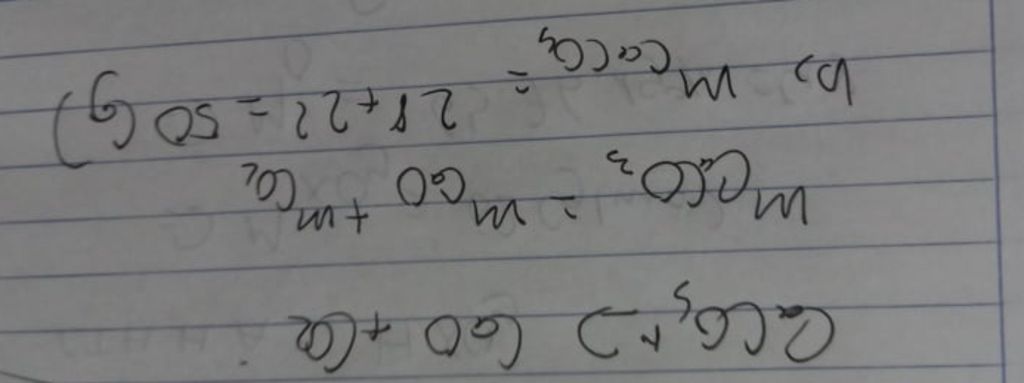 CaCO₃ → CaO + CO₂
mCaCO₃ = mCaO + mCO₂
b) mCaCO₃ = 28 + 22 = 50 (g)